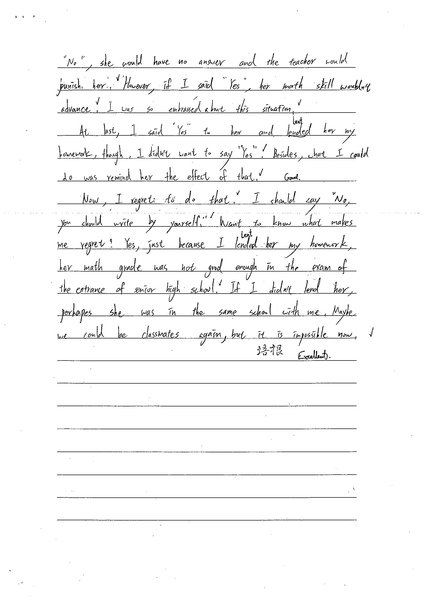 "No", she would have no answer and the teacher would
punish her. However, if I said "Yes", her math skill wouldn't
advance. I was so embrrased about this situation.
lent
At last, I said "Yes" to her and lended her my
homework, though, I didn't want to say "Yes"! Besides, what I could
do was remind her the effect of that. Good.
Now, I regret to do that. I should say "No,
you should write by yourself." Want to know what makes
lent
me regret? Yes, just because I lended her my homework,
her math grade was not good enough in the exam of
the entrance of senior high school. If I didn't lend her,
perhapes she was in the same school with me. Maybe
we could be classmates again, but it is impossible now.
Excellent!